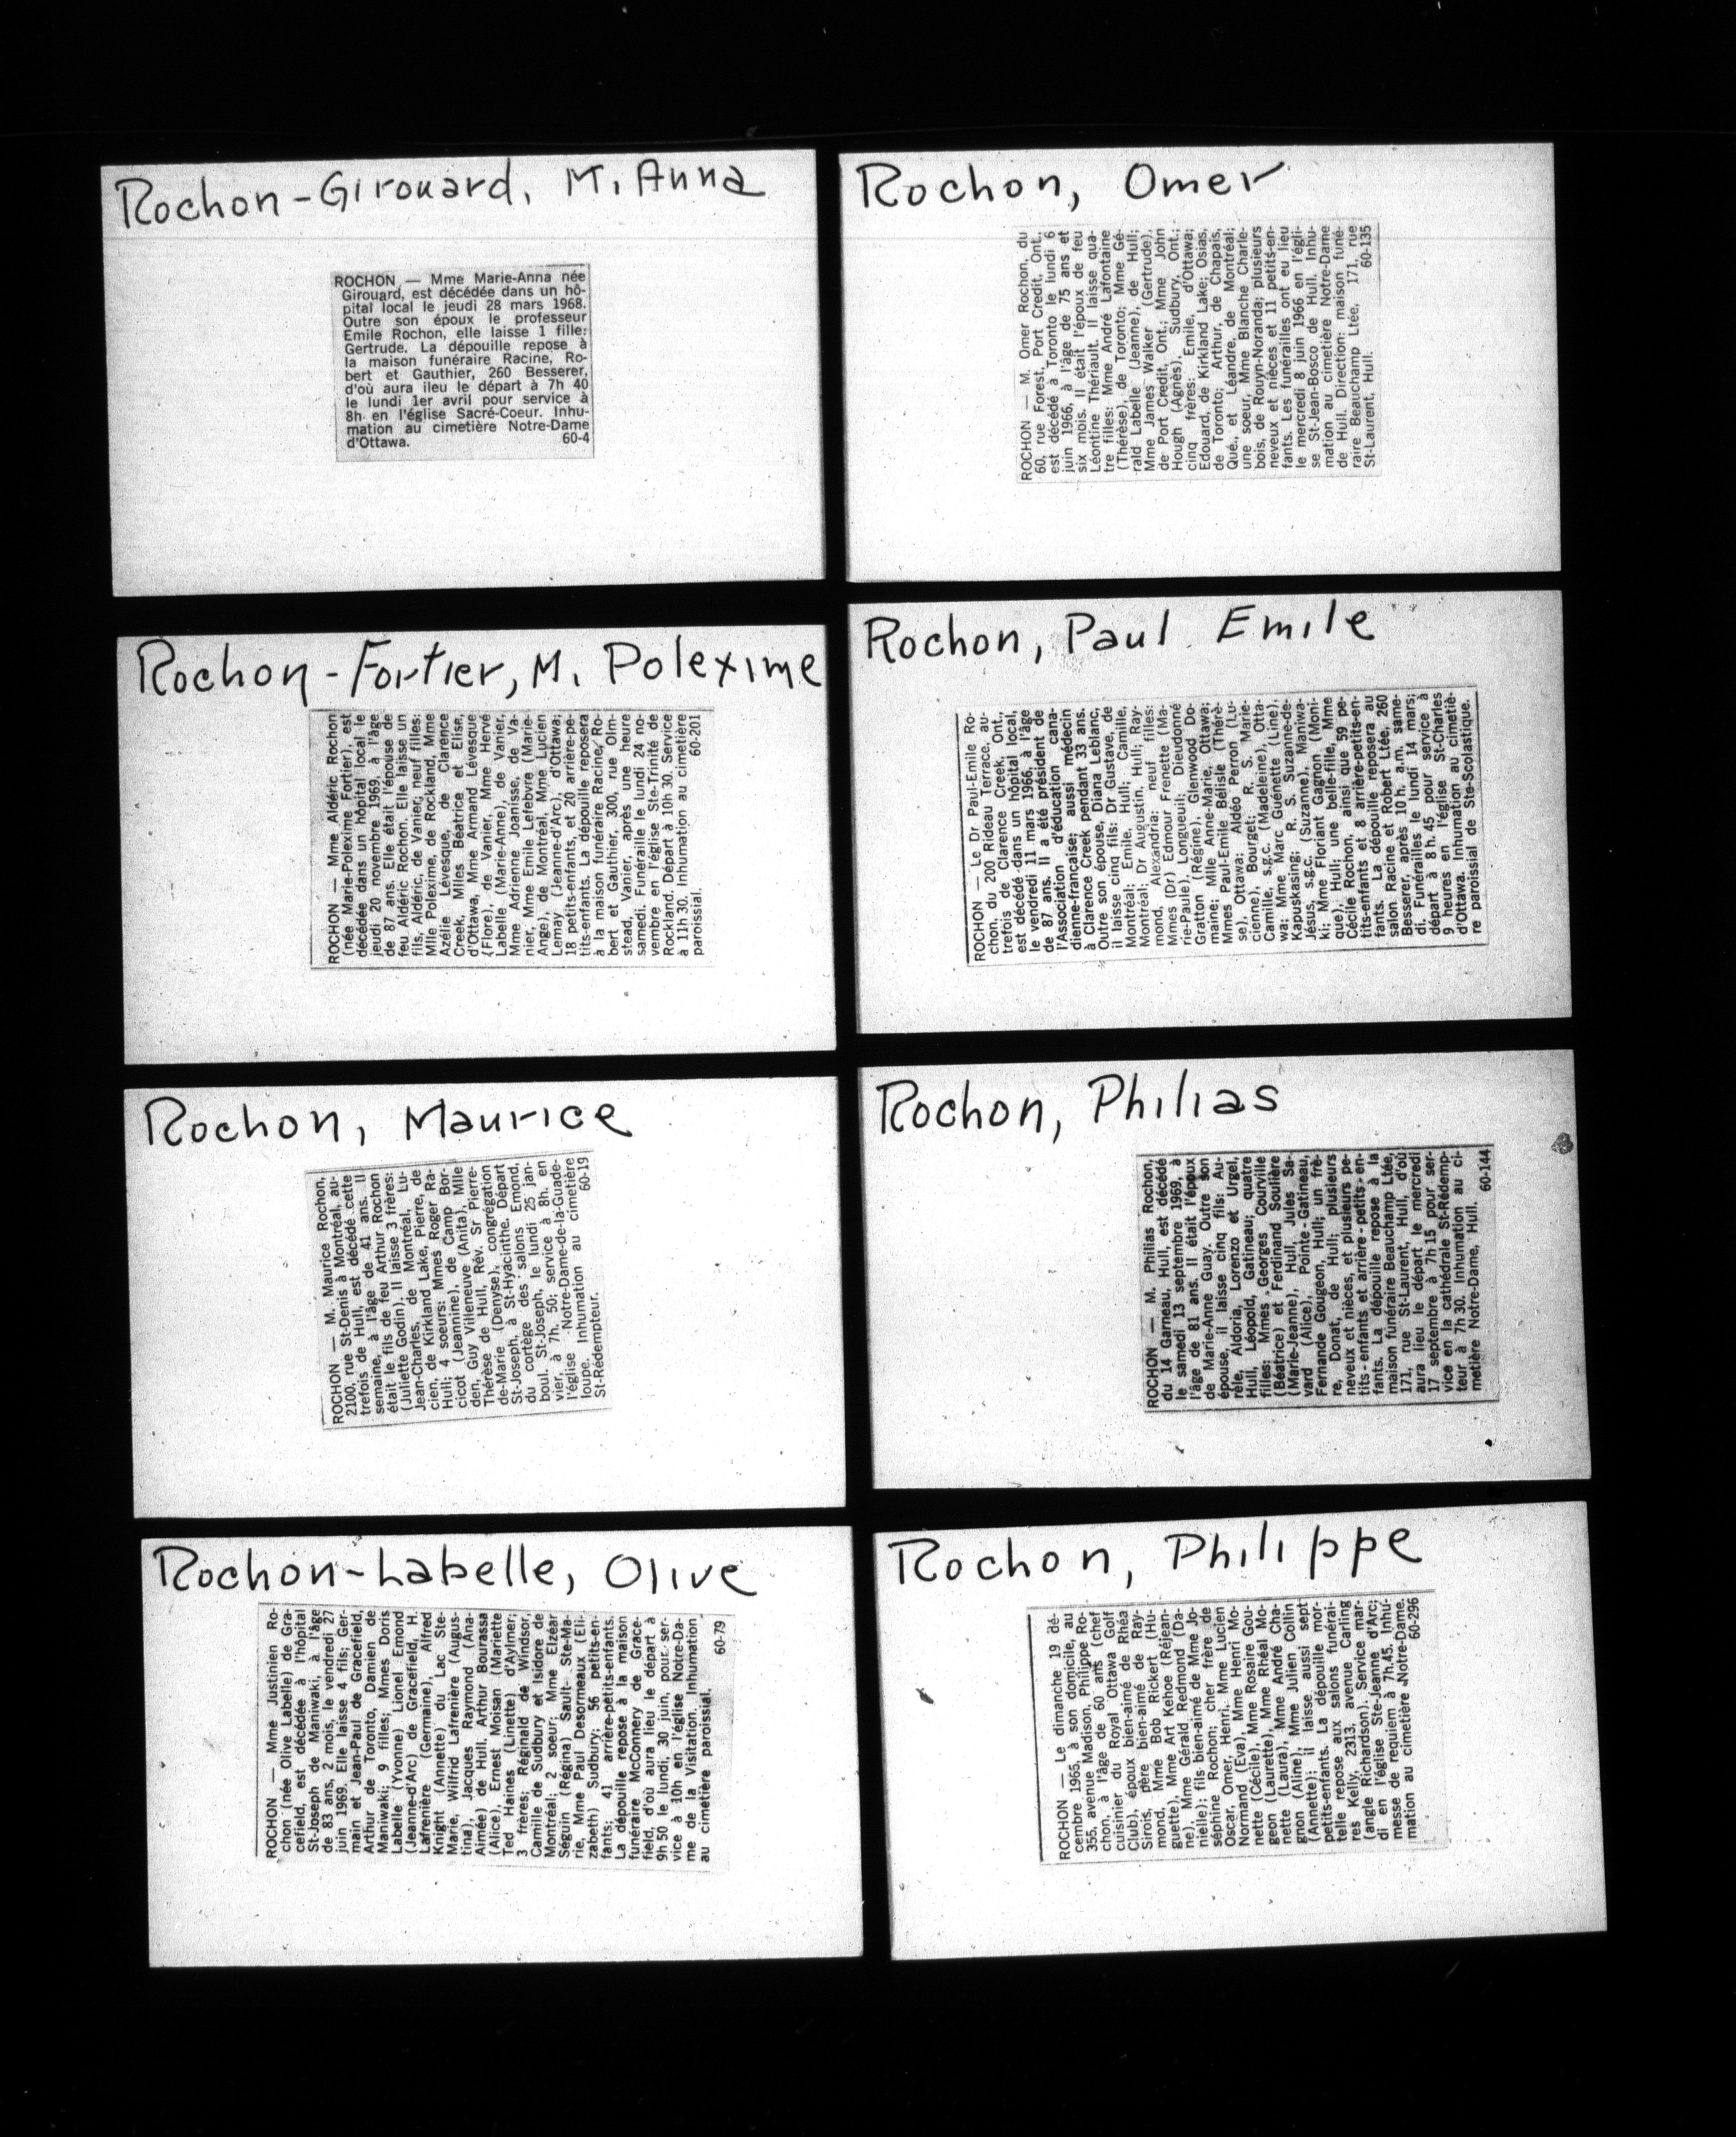 Rochon-Girouard, M. Anna
ROCHON — Mme Marie-Anna née
Girouard, est décédée dans un hô-
pital local le jeudi 28 mars 1968.
Outre son époux le professeur
Emile Rochon, elle laisse 1 fille:
Gertrude. La dépouille repose à
la maison funéraire Racine, Ro-
bert et Gauthier, 260 Besserer,
d'où aura ileu le départ à 7h 40
le lundi 1er avril pour service à
8h en l'église Sacré-Coeur. Inhu-
mation au cimetière Notre-Dame
d'Ottawa. 60-4
Rochon, Omer
ROCHON — M. Omer Rochon, du
60, rue Forest, Port Credit, Ont.,
est décédé à Toronto le lundi 6
juin 1966, à l'âge de 75 ans et
six mois. Il était l'époux de feu
Léontine Thériault. Il laisse qua-
tre filles: Mme André Lafontaine
(Thérèse), de Toronto; Mme Gé-
rald Labelle (Jeanne), de Hull;
Mme James Walker (Gertrude),
de Port Credit, Ont.; Mme John
Hough (Agnès), Sudbury, Ont.;
cinq frères: Emile, d'Ottawa;
Edouard, de Kirkland Lake; Osias,
de Toronto; Arthur, de Chapais,
Qué., et Léandre, de Montréal;
une soeur, Mme Blanche Charle-
bois, de Rouyn-Noranda; plusieurs
neveux et nièces et 11 petits-en-
fants. Les funérailles ont eu lieu
le mercredi 8 juin 1966 en l'égli-
se St-Jean-Bosco de Hull. Inhu-
mation au cimetière Notre-Dame
de Hull. Direction: maison funé-
raire Beauchamp Ltée, 171, rue
St-Laurent, Hull. 60-135
Rochon-Fortier, M. Polexime
ROCHON — Mme Aldéric Rochon
(née Marie-Polexime Fortier), est
décédée dans un hôpital local le
jeudi 20 novembre 1969, à l'âge
de 87 ans. Elle était l'épouse de
feu Aldéric Rochon. Elle laisse un
fils, Aldéric, de Vanier; neuf filles:
Mlle Polexime, de Rockland, Mme
Azélie Lévesque, de Clarence
Creek, Mlles Béatrice et Elise,
d'Ottawa, Mme Armand Lévesque
(Flore), de Vanier, Mme Hervé
Labelle (Marie-Anne), de Vanier,
Mme Adrienne Joanisse, de Va-
nier, Mme Emile Lefebvre (Marie-
Ange), de Montréal, Mme Lucien
Lemay (Jeanne-d'Arc), d'Ottawa;
18 petits-enfants, et 20 arrière-pe-
tits-enfants. La dépouille reposera
à la maison funéraire Racine, Ro-
bert et Gauthier, 300, rue Olm-
stead, Vanier, après une heure
samedi. Funéraille le lundi 24 no-
vembre en l'église Ste-Trinité de
Rockland. Départ à 10h 30. Service
à 11h 30. Inhumation au cimetière
paroissial. 60-201
Rochon, Paul Emile
ROCHON — Le Dr Paul-Emile Ro-
chon, du 200 Rideau Terrace, au-
trefois de Clarence Creek, Ont.,
est décédé dans un hôpital local,
le vendredi 11 mars 1966, à l'âge
de 87 ans. Il a été président de
l'Association d'éducation cana-
dienne-française; aussi médecin
à Clarence Creek pendant 33 ans.
Outre son épouse, Diana Leblanc,
il laisse cinq fils: Dr Gustave, de
Montréal; Emile, Hull; Camille,
Montréal; Dr Augustin, Hull; Ray-
mond, Alexandria: neuf filles:
Mmes (Dr) Edmour Frenette (Ma-
rie-Paule), Longueuil; Dieudonné
Gratton (Régine), Glenwood Do-
maine; Mlle Anne-Marie, Ottawa;
Mmes Paul-Emile Bélisle (Thérè-
se), Ottawa; Aldéo Perron (Lu-
cienne), Bourget; R. S. Marie-
Camille, s.g.c. (Madeleine), Otta-
wa; Mme Marc Guénette (Line),
Kapuskasing; R. S. Suzanne-de-
Jésus, s.g.c. (Suzanne), Maniwa-
ki; Mme Floriant Gagnon (Moni-
que), Hull; une belle-fille, Mme
Cécile Rochon, ainsi que 59 pe-
tits-enfants et 8 arrière-petits-en-
fants. La dépouille reposera au
salon Racine et Robert Ltée, 260
Besserer, après 10 h. a.m. same-
di. Funérailles le lundi 14 mars;
départ à 8 h. 45 pour service à
9 heures en l'église St-Charles
d'Ottawa. Inhumation au cimetiè-
re paroissial de Ste-Scolastique.
Rochon, Maurice
ROCHON — M. Maurice Rochon,
2100, rue St-Denis à Montréal, au-
trefois de Hull, est décédé cette
semaine, à l'âge de 41 ans. Il
était le fils de feu Arthur Rochon
(Juliette Godin). Il laisse 3 frères:
Jean-Charles, de Montréal, Lu-
cien, de Kirkland Lake, Pierre, de
Hull; 4 soeurs: Mmes Roger Ra-
cicot (Jeannine), de Camp Bor-
den, Guy Villeneuve (Anita), Mlle
Thérèse de Hull, Rév. Sr Pierre-
de-Marie (Denyse), congrégation
St-Joseph, à St-Hyacinthe. Départ
du cortège des salons Emond,
boul. St-Joseph, le lundi 25 jan-
vier, à 7h. 50; service à 8h. en
l'église Notre-Dame-de-la-Guade-
loupe. Inhumation au cimetière
St-Rédempteur. 60-19
Rochon, Philias
ROCHON — M. Philias Rochon,
du 14 Garneau, Hull, est décédé
le samedi 13 septembre 1969, à
l'âge de 81 ans. Il était l'époux
de Marie-Anne Guay. Outre son
épouse, il laisse cinq fils: Au-
rèle, Aldoria, Lorenzo et Urgel,
Hull, Léopold, Gatineau; quatre
filles: Mmes Georges Courville
(Béatrice) et Ferdinand Soulière
(Marie-Jeanne), Hull, Jules Sa-
vard (Alice), Pointe-Gatineau,
Fernande Gougeon, Hull; un frè-
re, Donat, de Hull; plusieurs
neveux et nièces, et plusieurs pe-
tits-enfants et arrière-petits-en-
fants. La dépouille repose à la
maison funéraire Beauchamp Ltée,
171, rue St-Laurent, Hull, d'où
aura lieu le départ le mercredi
17 septembre à 7h 15 pour ser-
vice en la cathédrale St-Rédemp-
teur à 7h 30. Inhumation au ci-
metière Notre-Dame, Hull.
60-144
Rochon-Labelle, Olive
ROCHON — Mme Justinien Ro-
chon (née Olive Labelle) de Gra-
cefield, est décédée à l'hôpital
St-Joseph de Maniwaki, à l'âge
de 83 ans, 2 mois, le vendredi 27
juin 1969. Elle laisse 4 fils; Ger-
main et Jean-Paul de Gracefield,
Arthur de Toronto, Damien de
Maniwaki; 9 filles; Mmes Doris
Labelle (Yvonne) Lionel Emond
(Jeanne-d'Arc) de Gracefield, H.
Lafrenière (Germaine), Alfred
Knight (Annette) du Lac Ste-
Marie, Wilfrid Lafrenière (Augus-
tina), Jacques Raymond (Ana-
Aimée) de Hull, Arthur Bourassa
(Alice), Ernest Moisan (Mariette
Ted Haines (Linette) d'Aylmer;
3 freres; Réginald de Windsor,
Camille de Sudbury et Isidore de
Montréal; 2 soeur; Mme Elzéar
Séguin (Régina) Sault- Ste-Ma-
rie, Mme Paul Desormeaux (Eli-
zabeth) Sudbury; 56 petits-en-
fants; 41 arrière-petits-enfants.
La dépouille repose à la maison
funéraire McConnery de Grace-
field, d'où aura lieu le départ à
9h 50 le lundi, 30 juin, pour ser-
vice à 10h en l'église Notre-Da-
me de la Visitation. Inhumation
au cimetière paroissial.
60-79
Rochon, Philippe
ROCHON — Le dimanche 19 dé-
cembre 1965, à son domicile, au
355, avenue Madison, Philippe Ro-
chon, à l'âge de 60 ans (chef
cuisinier du Royal Ottawa Golf
Club), époux bien-aimé de Rhéa
Sirois, père bien-aimé de Ray-
mond, Mme Bob Rickert (Hu-
guette), Mme Art Kehoe (Réjean-
ne), Mme Gérald Redmond (Da-
nielle); fils bien-aimé de Mme Jo-
séphine Rochon; cher frère de
Oscar, Omer, Henri, Mme Lucien
Normand (Eva), Mme Henri Mo-
nette (Cécile), Mme Rosaire Gou-
geon (Laurette), Mme Rhéal Mo-
nette (Laura), Mme André Cha-
gnon (Aline), Mme Julien Collin
(Annette); il laisse aussi sept
petits-enfants. La dépouille mor-
telle repose aux salons funérai-
res Kelly, 2313, avenue Carling
(angle Richardson). Service mar-
di en l'église Ste-Jeanne d'Arc;
messe de requiem à 7h.45. Inhu-
mation au cimetière Notre-Dame.
60-296